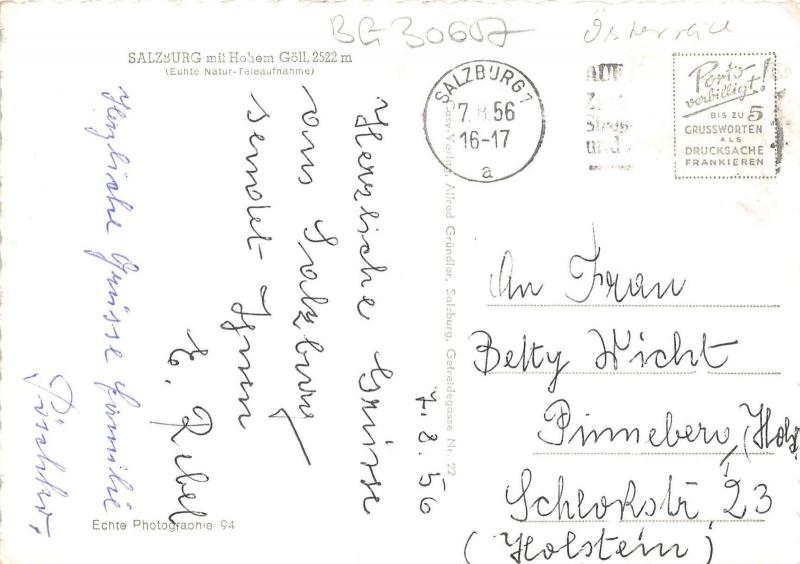 BG 30607 Österreich
SALZBURG mit Hohem Göll, 2522 m
(Echte Natur-Teleaufnahme)
SALZBURG 7
7.8.56
16-17
a
Porto
verbilligt!
BIS ZU 5
GRUSSWORTEN
ALS
DRUCKSACHE
FRANKIEREN
Cosy-Verlag Alfred Gründler, Salzburg, Getreidegasse Nr. 22
Herzliche Grüsse
aus Salzburg
sendet Ihnen
E. Rebel
7.8.56
Herzliche Grüsse Familie
An Frau
Betty Wicht
Pinneberg (Holst
23
(Holstein)
Echte Photographie 94